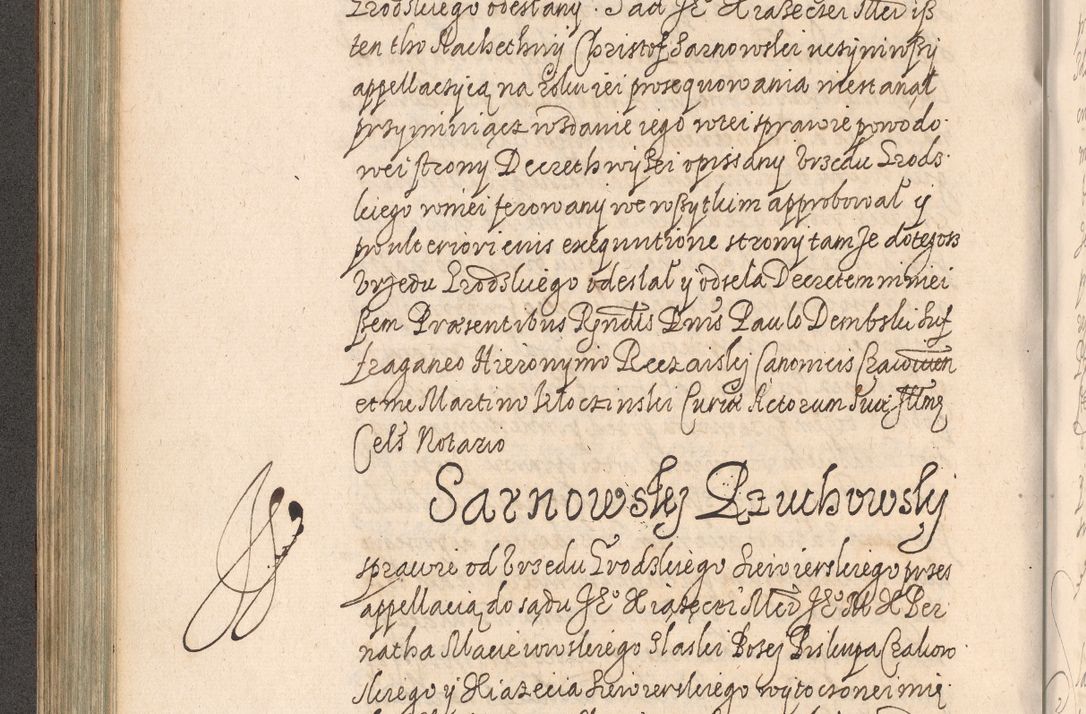 Grodskiego odesłany. Sad Je° Xiazeczei Mći isz
ten tho Rachethny Christof Sarnowski uczyniwszy
appellaczyią na roku iei prosequowania niestanął
przyminiącz wsdanie iego wtei sprawie powodo
wei strony Decreth wyszei opissany Vrzedu Grods
kiego wniei ferowany we wszytkim approbował y
pro ulteriori euis exequutione strony tam Je do tegosz
Vrzedu Grodskiego odesłał y odseła Decretem niniei
szem Præsentibus Rndis Dnis Paulo Dembski Suf
fraganeo Hieronymo Reczaiskj Canonicis Cracovien
et me Martino Kłoczinski Curiæ Actorum Suæ Illmæ
Cels Notario
Sarnowskj Rzuchowskj
sprawie od Vrzedu Grodskiego Siewierskiego przes
appellacią do sądu Je° Xiążęczei Mći Je° M X Ber
natha Macieiowskiego z łaski Bozej Biskupa Crakow
skiego y Xiazecia Siewierskiego wytoczonei mię